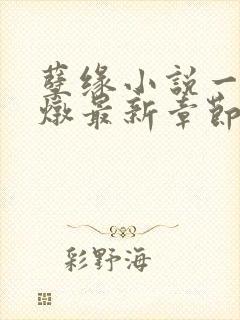 孽缘小説一
燉最新章節
彩野海